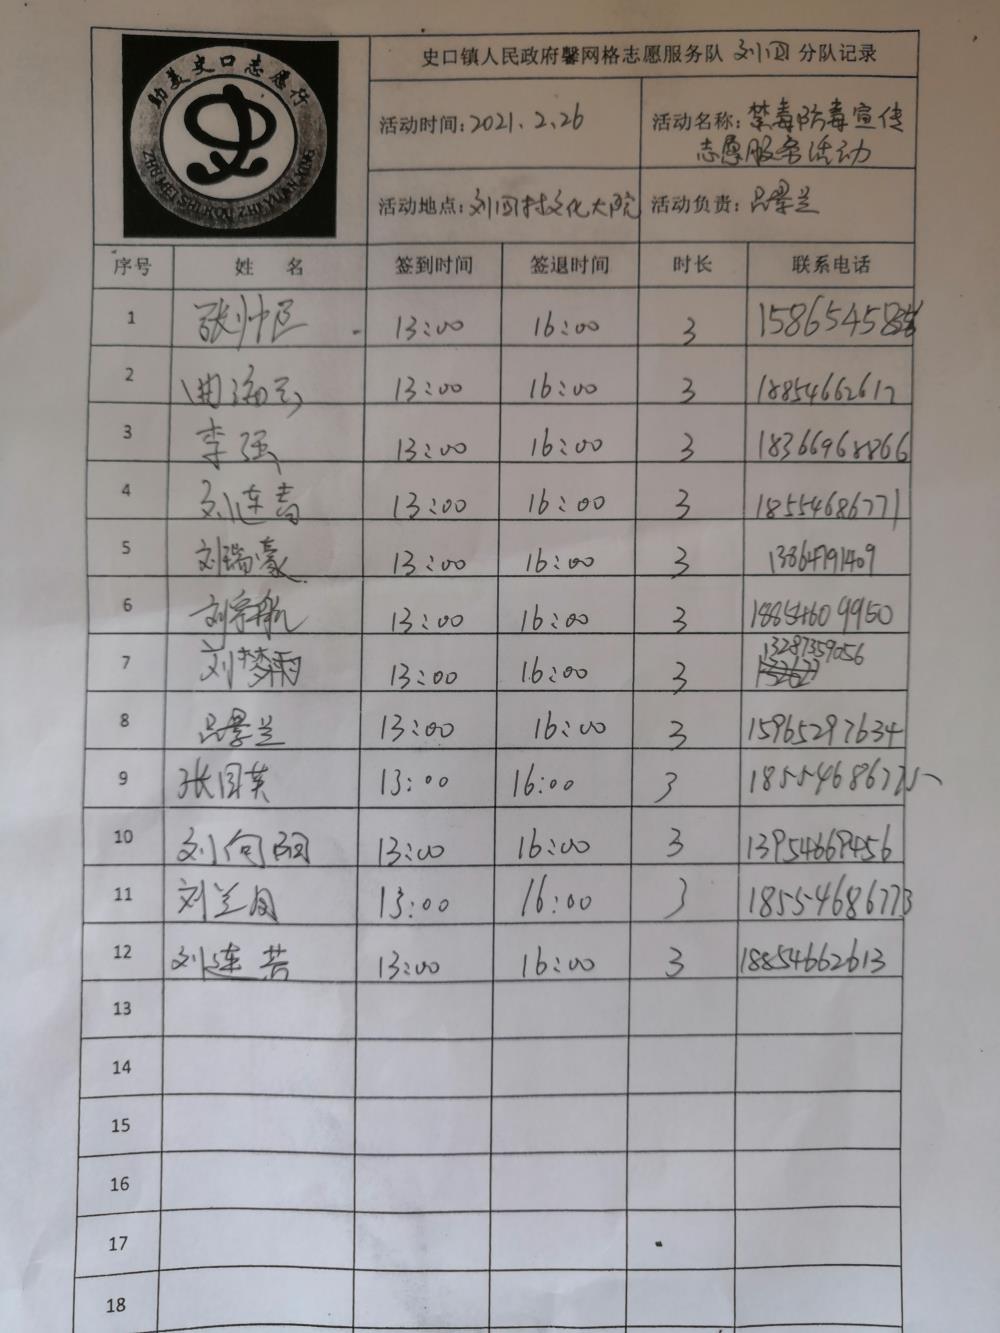 助美史口志愿行
ZHU MEI SHI KOU ZHI YUAN XING
史口镇人民政府馨网格志愿服务队 刘四 分队记录
活动时间:2021.2.26
活动名称:禁毒防毒宣传
志愿服务活动
活动地点:刘四村文化大院
活动负责:吕景兰
序号 姓 名 签到时间 签退时间 时长 联系电话
1 张帅臣 13:00 16:00 3 158654583
2 13:00 16:00 3 18854662617
3 李强 13:00 16:00 3 18366968866
4 刘连吉 13:00 16:00 3 18554686771
5 刘瑞豪 13:00 16:00 3 13864791409
6 刘宗航 13:00 16:00 3 18854609950
7 刘梦雨 13:00 16:00 3 13287359056
8 吕景兰 13:00 16:00 3 15965297634
9 张同英 13:00 16:00 3 18554686775
10 刘向阳 13:00 16:00 3 13954669456
11 刘兰同 13:00 16:00 3 18554686773
12 刘连芳 13:00 16:00 3 18854662613
13
14
15
16
17
18